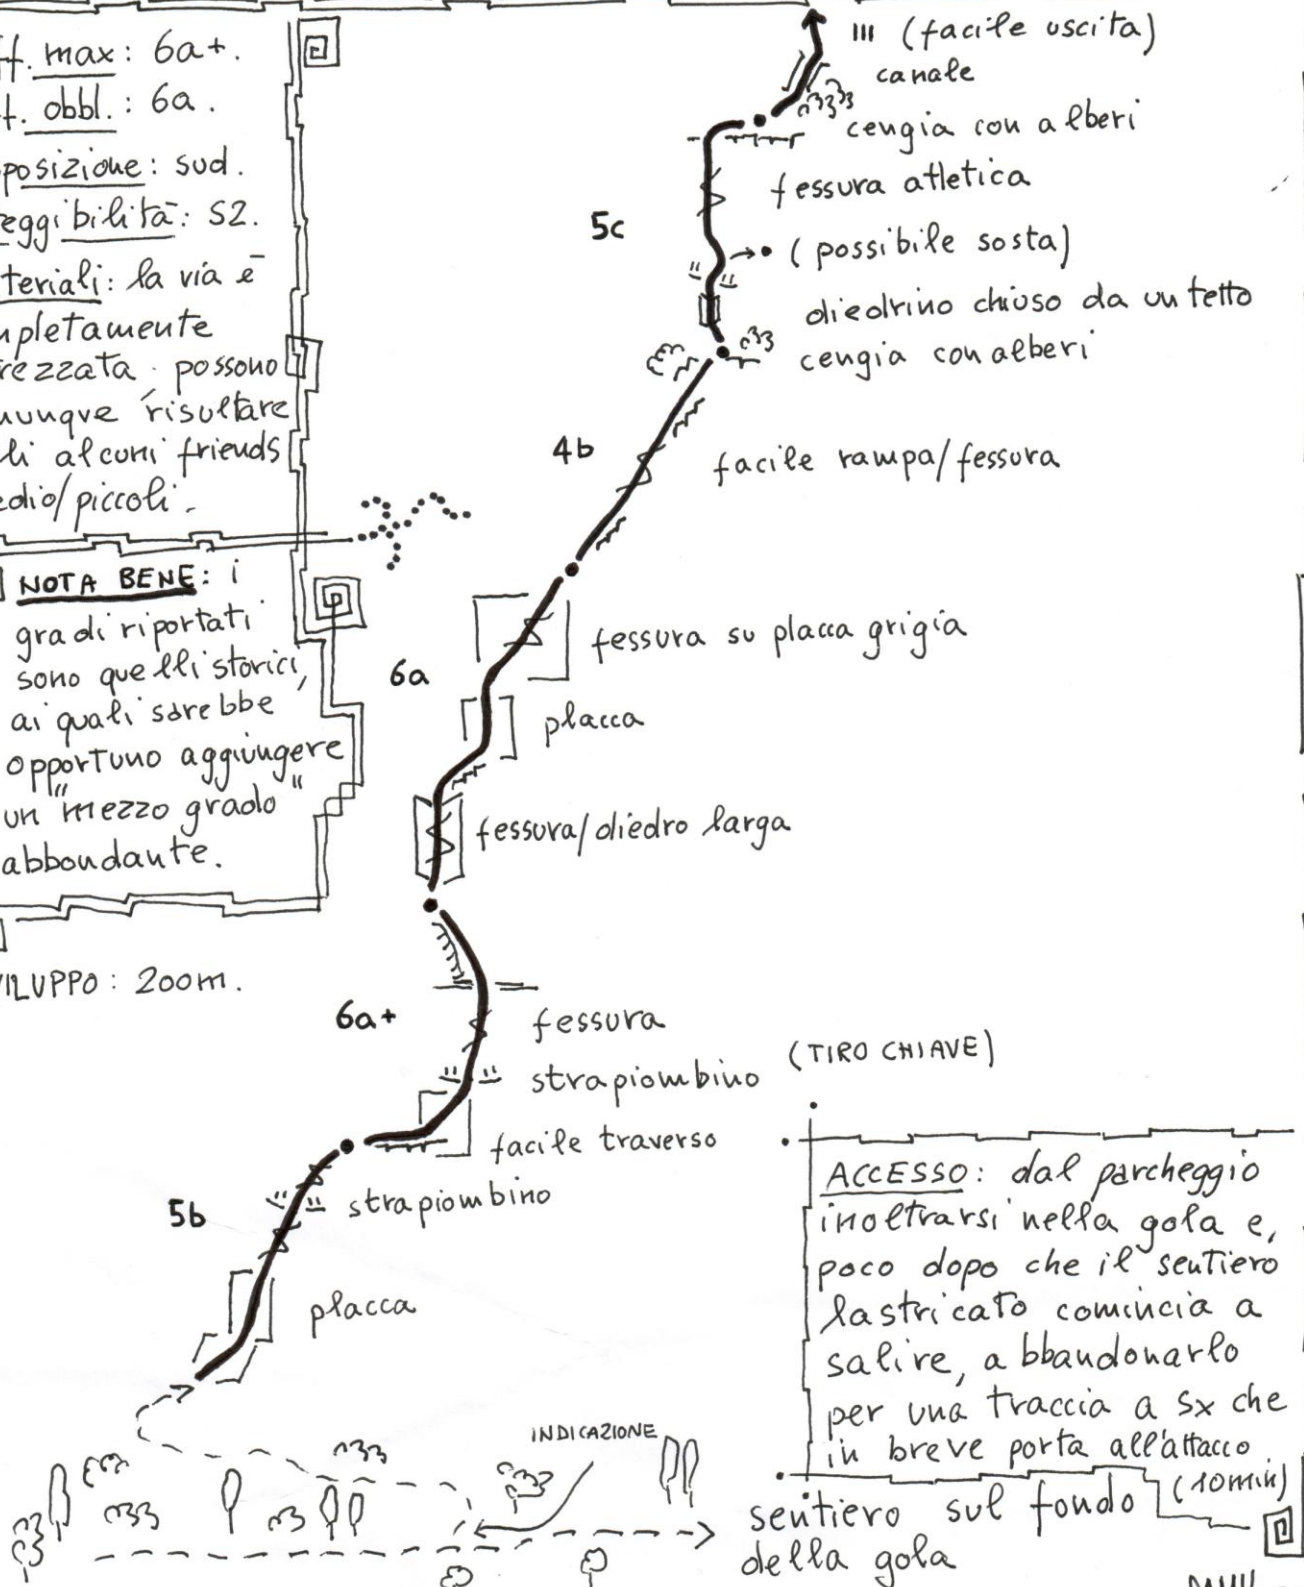 ff. max: 6a+.
f. obbl.: 6a.
posizione: sud.
eggibilità: S2.
teriali: la via è
mpletamente
rezzata. possono
nunque risultare
li alcuni friends
edio/piccoli.
NOTA BENE: i
gradi riportati
sono quelli storici,
ai quali sarebbe
opportuno aggiungere
un "mezzo grado"
abbondante.
VILUPPO: 200m.
III (facile uscita)
canale
cengia con alberi
fessura atletica
5c
(possibile sosta)
diedrino chiuso da un tetto
cengia con alberi
4b
facile rampa/fessura
fessura su placca grigia
6a
placca
fessura/diedro larga
6a+
fessura
(TIRO CHIAVE)
strapiombino
facile traverso
5b
strapiombino
placca
ACCESSO: dal parcheggio
inoltrarsi nella gola e,
poco dopo che il sentiero
lastricato comincia a
salire, abbandonarlo
per una traccia a sx che
in breve porta all'attacco
(10min)
INDICAZIONE
sentiero sul fondo
della gola